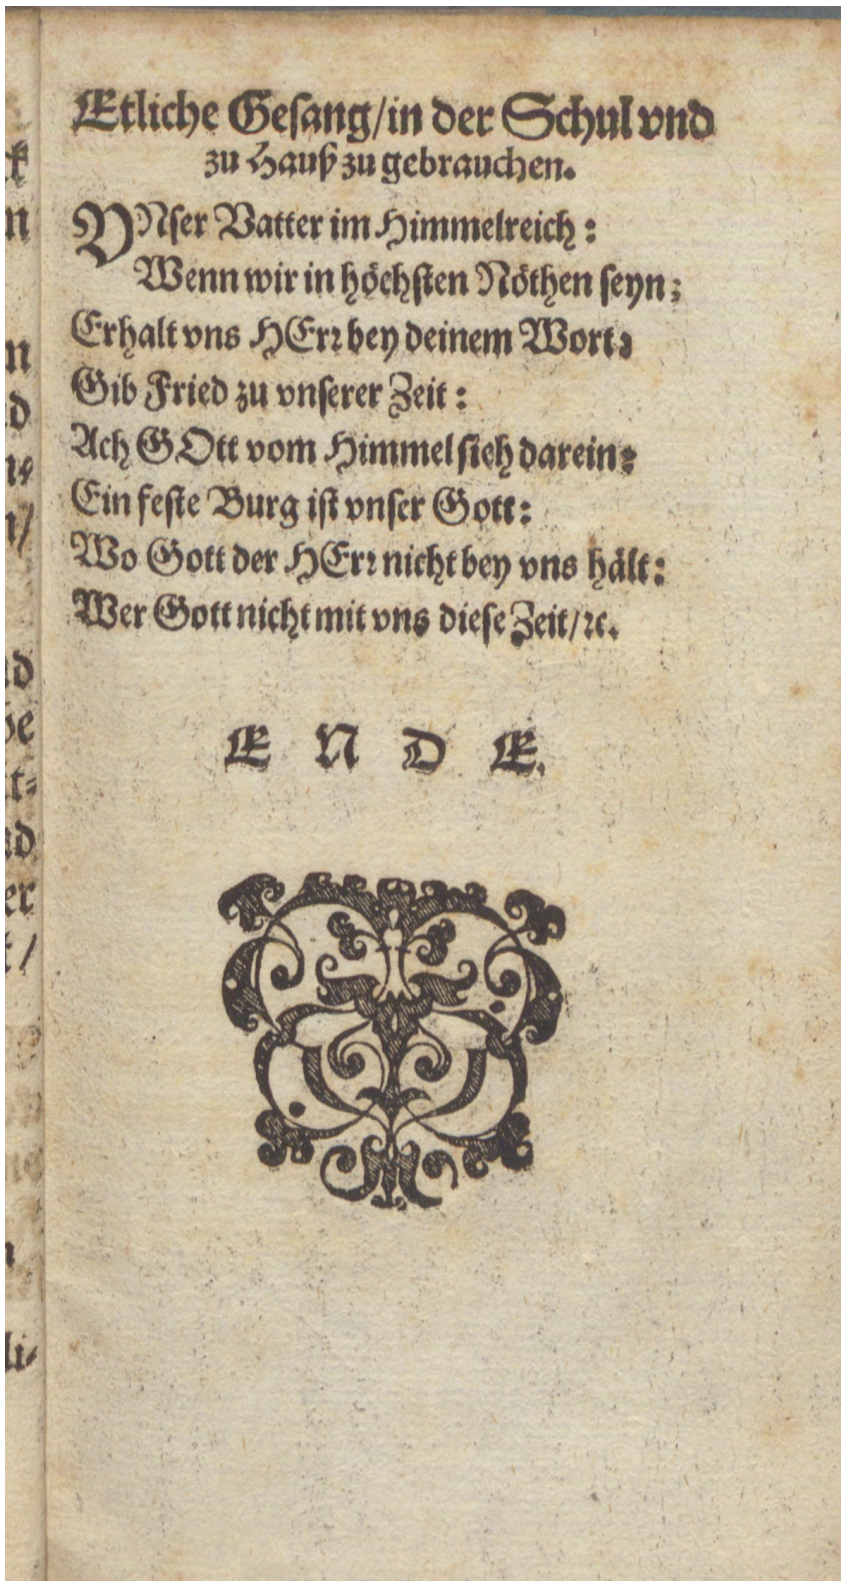 Etliche Gesang/ in der Schul vnd
zu Hauß zu gebrauchen.
VNser Vatter im Himmelreich:
Wenn wir in höchsten Nöthen seyn:
Erhalt vns HErr bey deinem Wort:
Gib Fried zu vnserer Zeit:
Ach GOtt vom Himmel sieh darein:
Ein feste Burg ist vnser Gott:
Wo Gott der HErr nicht bey vns hält:
Wer Gott nicht mit vns diese Zeit/ ꝛc.
E N D E.